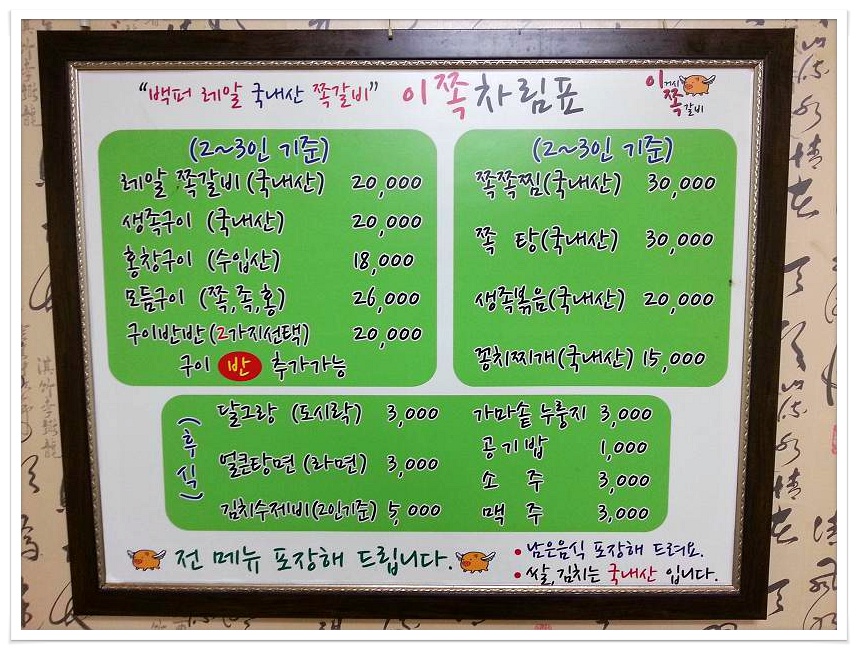 "백퍼 레알 국내산 쪽갈비" 이쪽차림표
이거시 쪽갈비
(2~3인 기준)
레알 쪽갈비 (국내산) 20,000
생족구이 (국내산) 20,000
홍창구이 (수입산) 18,000
모듬구이 (쪽,족,홍) 26,000
구이반반 (2가지선택) 20,000
구이 반 추가가능
(2~3인 기준)
쪽쪽찜(국내산) 30,000
쪽 탕(국내산) 30,000
생족볶음(국내산) 20,000
꽁치찌개(국내산) 15,000
(후식)
달그랑 (도시락) 3,000
얼큰탕면 (라면) 3,000
김치수제비(2인기준) 5,000
가마솥 누룽지 3,000
공기밥 1,000
소 주 3,000
맥 주 3,000
전 메뉴 포장해 드립니다.
• 남은음식 포장해 드려요.
• 쌀,김치는 국내산 입니다.